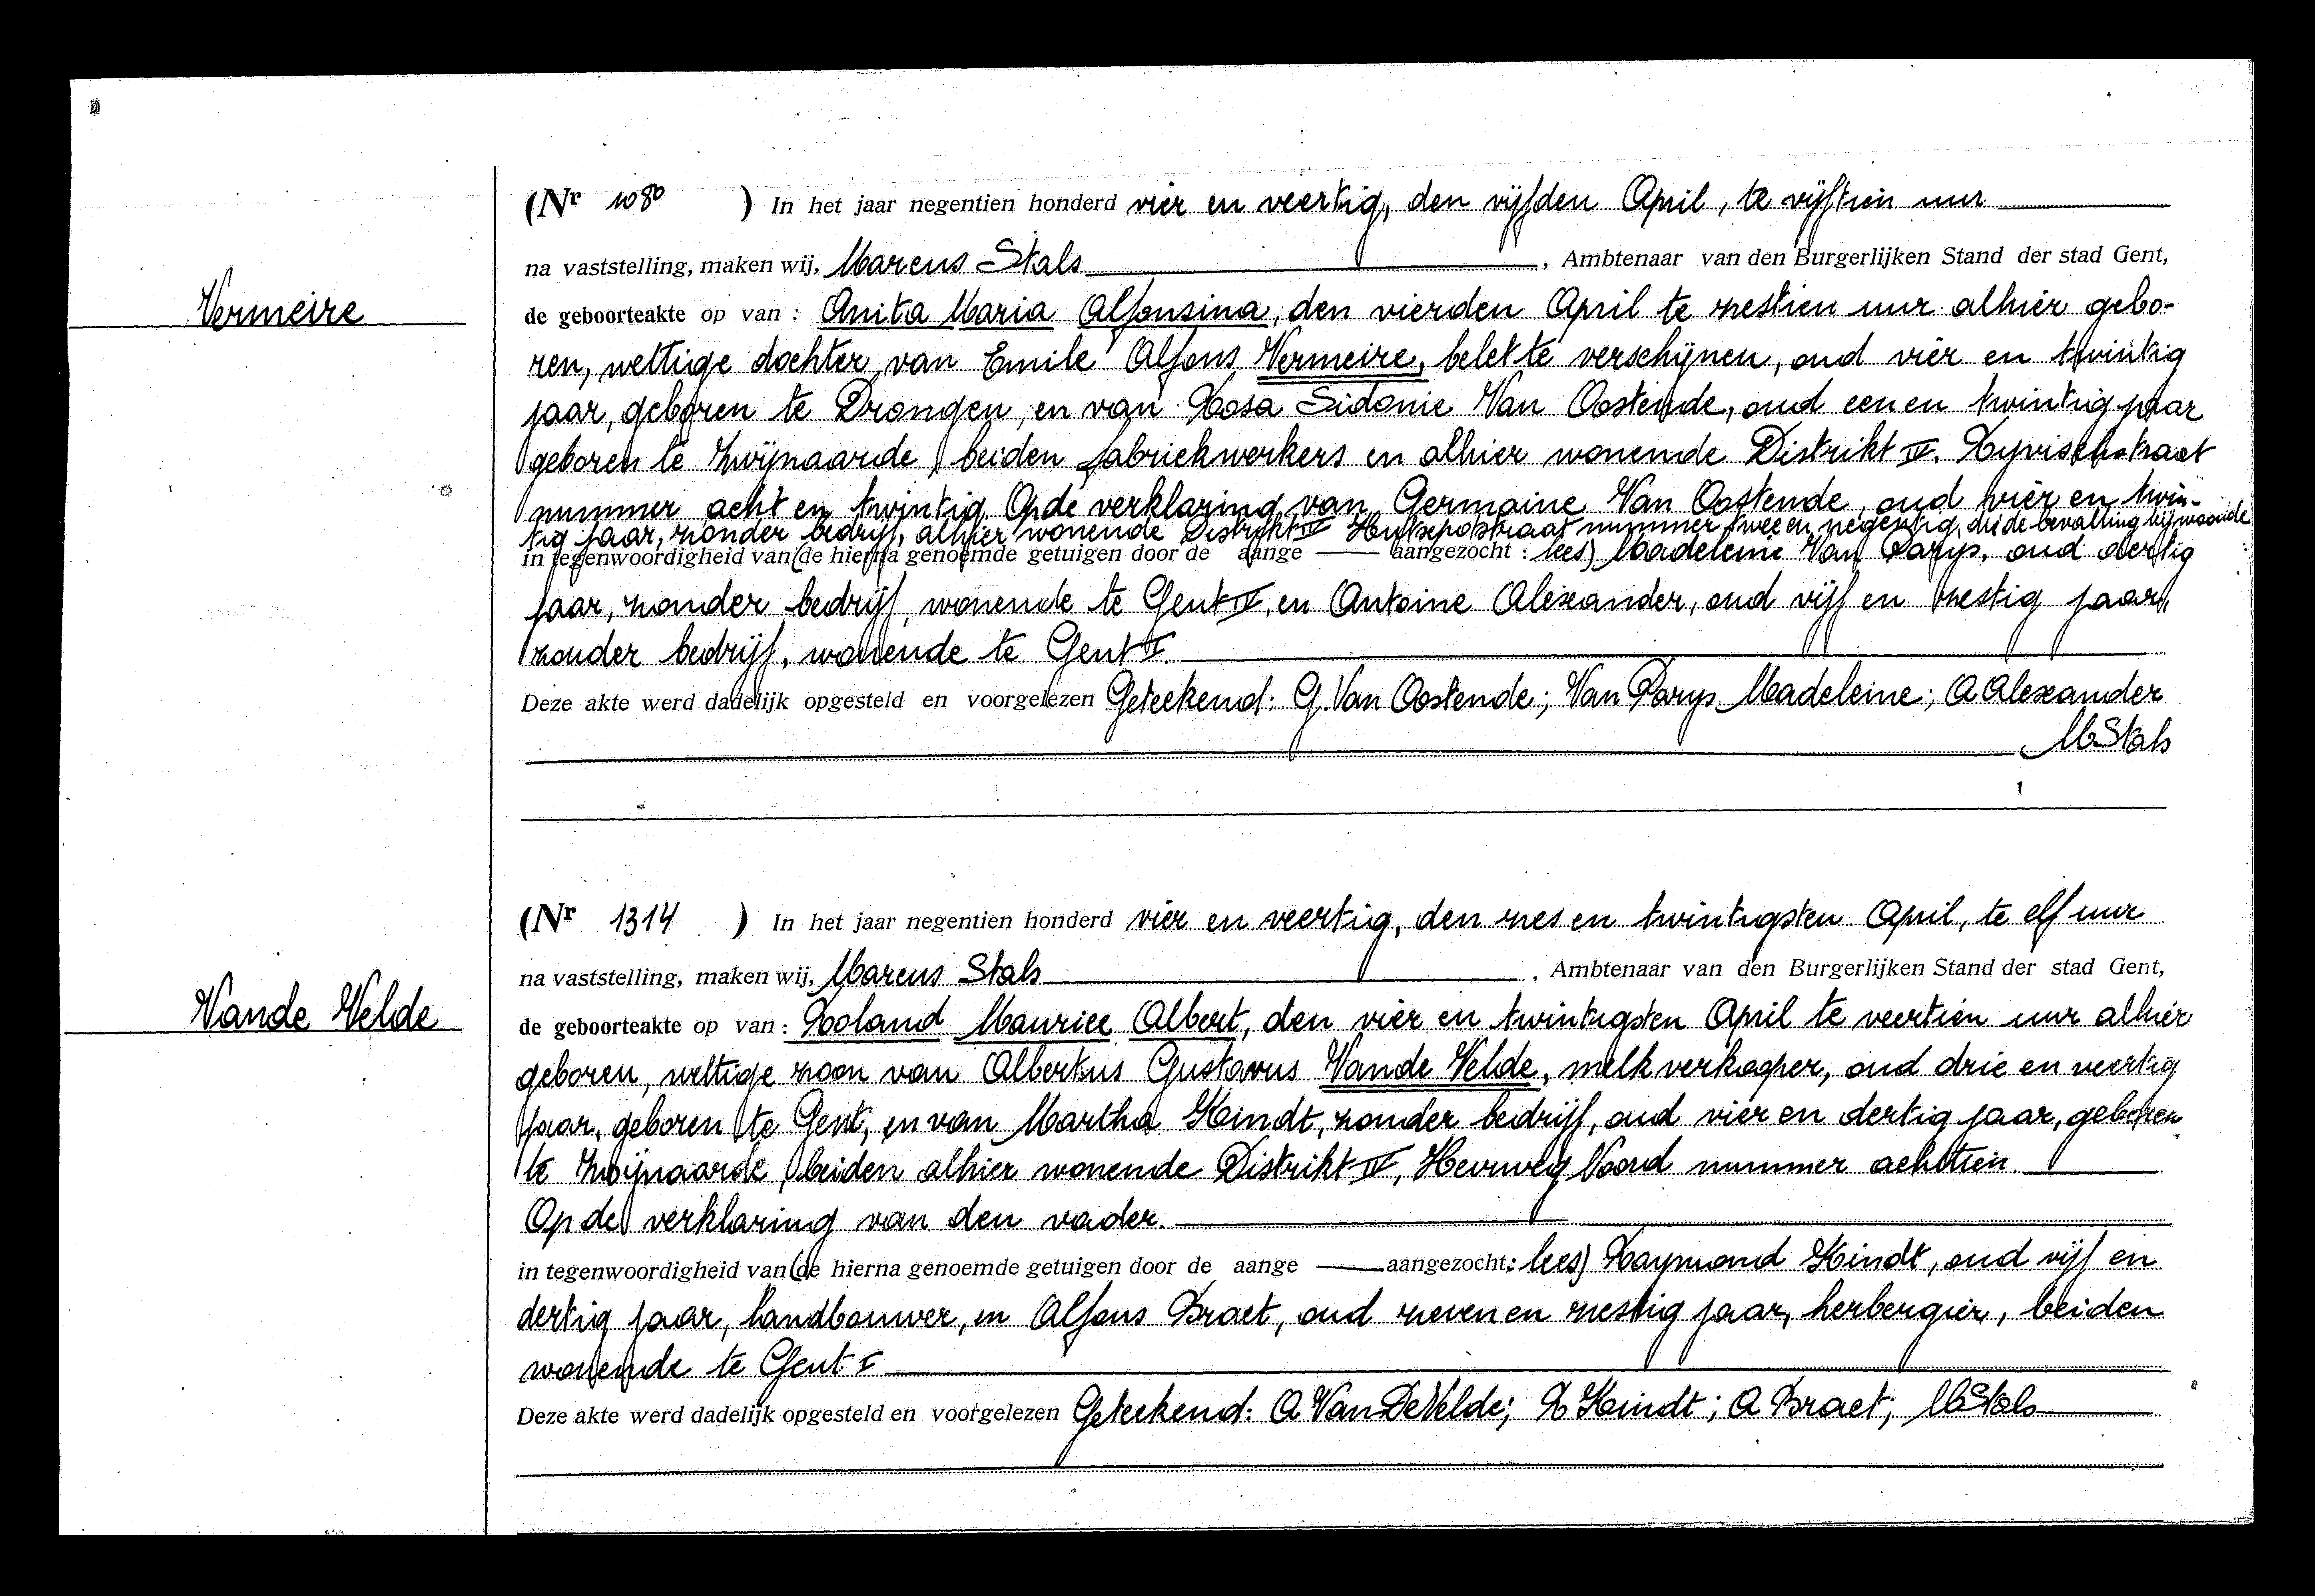 (Nr 1080 ) In het jaar negentien honderd vier en veertig, den vijfden April, te vijftien uur
na vaststelling, maken wij, Marcus Stals, Ambtenaar van den Burgerlijken Stand der stad Gent,
Vermeire
de geboorteakte op van : Anita Maria Alfonsina, den vierden April te zestien uur alhier gebo-
ren, wettige dochter van Emile Alfons Vermeire, belet te verschijnen, oud vier en twintig
jaar, geboren te Drongen, en van Rosa Sidonie Van Oostende, oud een en twintig jaar
geboren te Zwijnaarde, beiden fabriekwerkers en alhier wonende Distrikt IV.
nummer acht en twintig. Op de verklaring van Germaine Van Oostende, oud vier en twin-
tig jaar, zonder bedrijf, alhier wonende Distrikt IV Hutsepotstraat nummer twee en negentig, die de bevalling bijwoonde
in tegenwoordigheid van (de hierna genoemde getuigen door de aange aangezocht : lees) Madeleine Van Parys, oud dertig
jaar, zonder bedrijf, wonende te Gent IV, en Antoine Alexander, oud vijf en zestig jaar,
zonder bedrijf, wonende te Gent I.
Deze akte werd dadelijk opgesteld en voorgelezen Geteekend: G. Van Oostende; Van Parys Madeleine; A Alexander
M Stals
(Nr 1314 ) In het jaar negentien honderd vier en veertig, den zes en twintigsten April, te elf uur
na vaststelling, maken wij, Marcus Stals, Ambtenaar van den Burgerlijken Stand der stad Gent,
Vande Velde
de geboorteakte op van : Roland Maurice Albert, den vier en twintigsten April te veertien uur alhier
geboren, wettige zoon van Albertus Gustavus Vande Velde, melkverkooper, oud drie en veertig
jaar, geboren te Gent, en van Martha Haindt, zonder bedrijf, oud vier en dertig jaar, geboren
te Zwijnaarde, beiden alhier wonende Distrikt IV, Heerweg Noord nummer achttien
Op de verklaring van den vader.
in tegenwoordigheid van (de hierna genoemde getuigen door de aange aangezocht: lees) Raymond Haindt, oud vijf en
dertig jaar, landbouwer, en Alfons Braet, oud zeven en zestig jaar, herbergier, beiden
wonende te Gent I
Deze akte werd dadelijk opgesteld en voorgelezen Geteekend: A Van De Velde; R Haindt; A Braet; M Stals